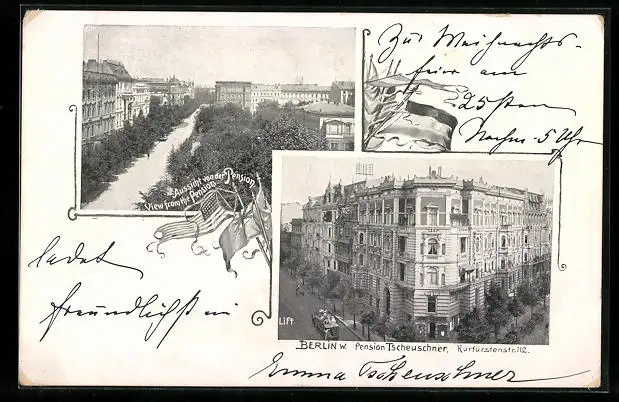 Zur Weihnachts-
feier am
25sten
Nachm. 5 Uhr
Aussicht von der Pension
View from the Pension
ladet
freundlichst ein
Lift
BERLIN W. Pension Tscheuschner, Kurfürstenstr. 112.
Emma Tscheuschner